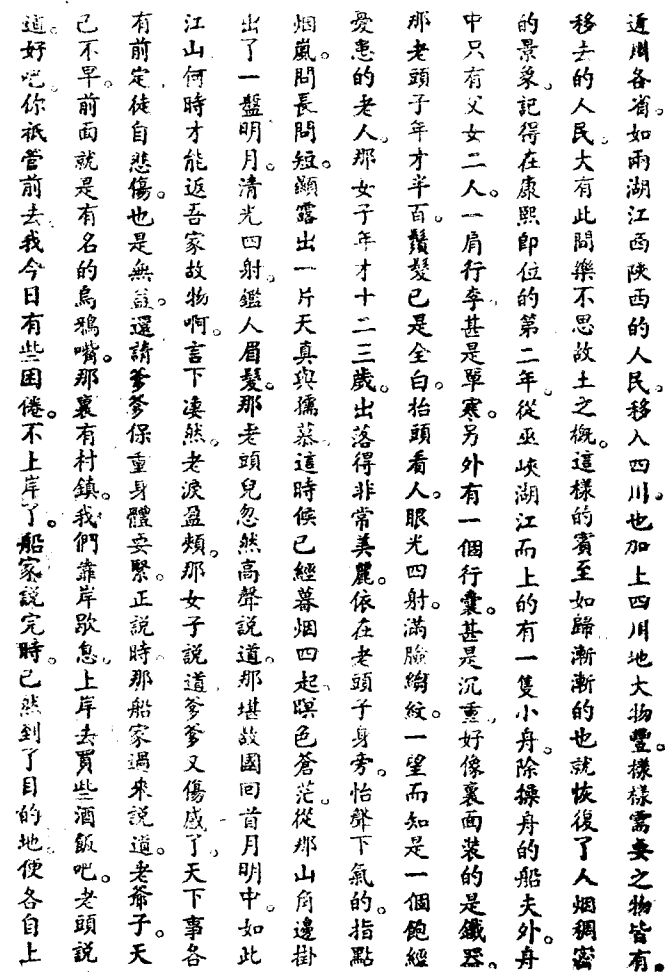 近川各省。如兩湖江西陝西的人民。移入四川。也加上四川地大物豐。樣樣需要之物皆有。
移去的人民。大有此間樂不思故土之概。這樣的賓至如歸。漸漸的也就恢復了人烟稠密
的景象。記得在康熙即位的第二年。從巫峽湖江而上的有一隻小舟。除操舟的船夫外。舟
中只有父女二人。一肩行李。甚是單寒。另外有一個行囊。甚是沉重。好像裏面裝的是鐵器。
那老頭子年才半百。鬚髮已是全白。抬頭看人。眼光四射。滿臉縐紋。一望而知是一個飽經
憂患的老人。那女子年才十二三歲。出落得非常美麗。依在老頭子身旁。怡聲下氣的。指點
烟嵐。問長問短。顯露出一片天真與孺慕。這時候已經暮烟四起。暝色蒼茫。從那山角邊掛
出了一盤明月。清光四射。鑑人眉髮。那老頭兒忽然高聲說道。那堪故國回首月明中。如此
江山何時才能返吾家故物啊。言下凄然。老淚盈頰。那女子說道。爹爹又傷感了。天下事各
有前定。徒自悲傷。也是無益。還請爹爹保重身體要緊。正說時。那船家過來說道。老爺子。天
已不早。前面就是有名的烏鴉嘴。那裏有村鎮。我們靠岸歇息。上岸去買些酒飯吧。老頭說
道。好吧。你祇管前去。我今日有些困倦。不上岸了。船家說完時。已然到了目的地。便各自上